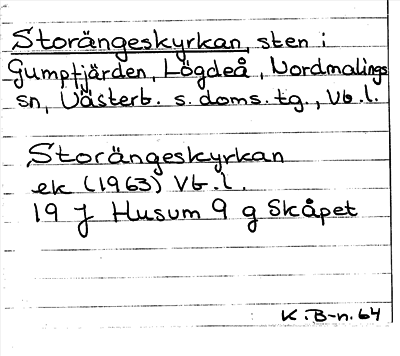 Storängeskyrkan, sten i
Gumptjärden, Lögdeå, Nordmalings
sn, Västerb. s. doms. tg., Vb. l.
Storängeskyrkan
ek (1963) Vb. l.
19 J Husum 9 g Skåpet
K. B-n. 64